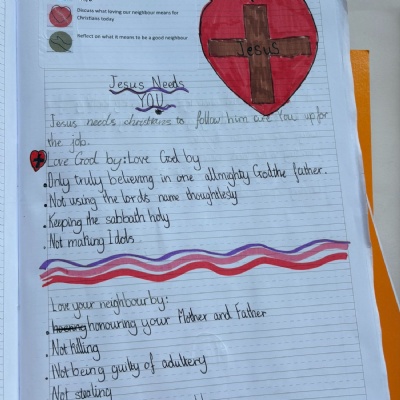 Discuss what loving our neighbour means for
Christians today
Reflect on what it means to be a good neighbour
Jesus
Jesus Needs
YOU
Jesus needs christians to follow him are you up for
the job.
Love God by: Love God by
Only truly believing in one almighty God the father.
Not using the lords name thoughtlesly
Keeping the sabbath holy
Not making Idols
Love your neighbour by:
honouring your Mother and Father
Not killing
Not being guilty of adultery
Not stealing